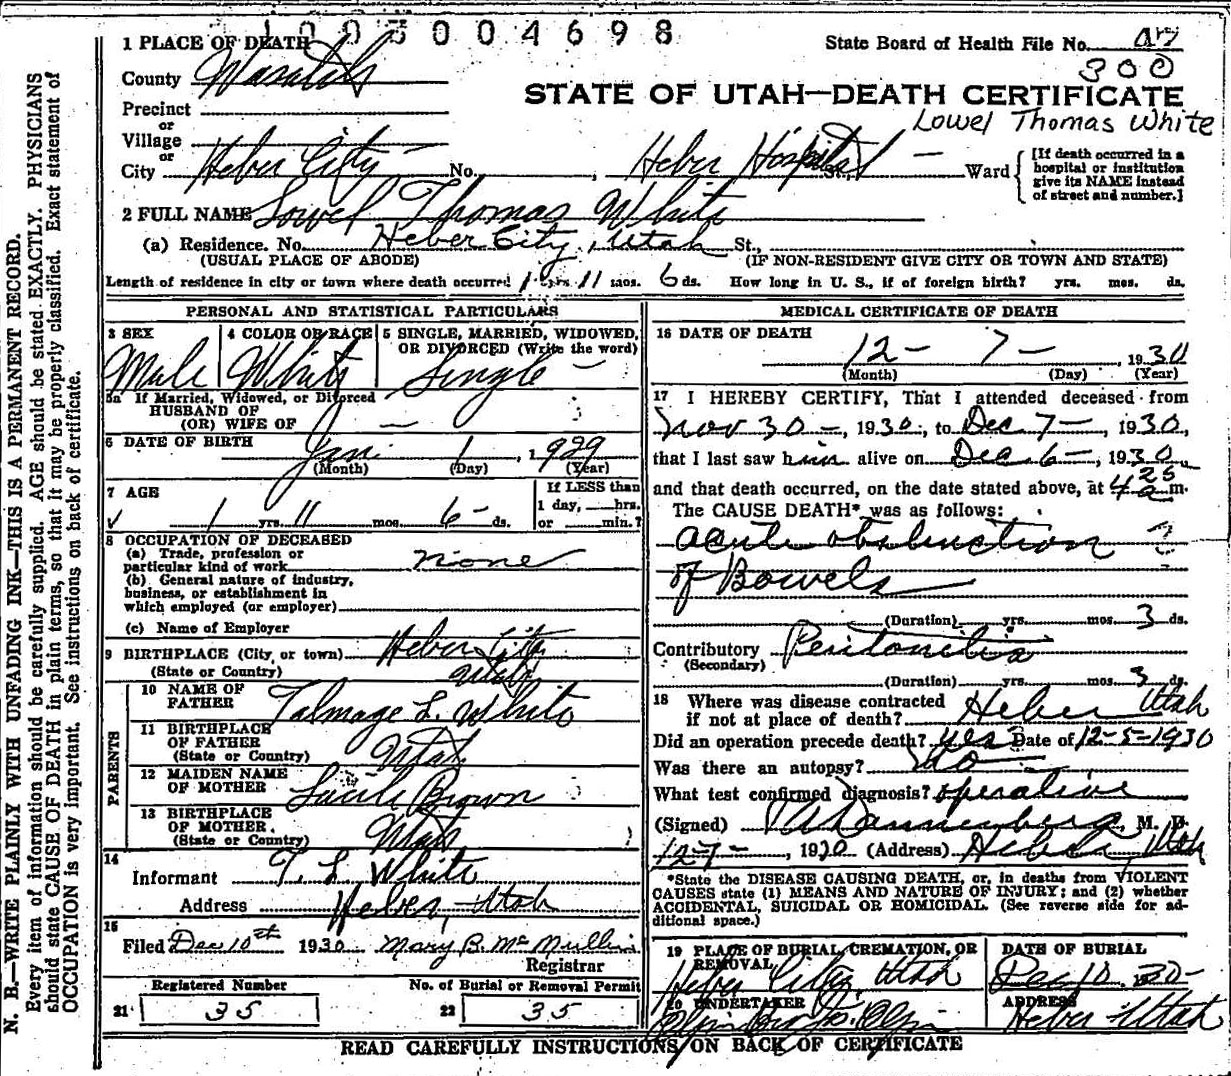 1 0 0 5 0 0 4 6 9 8
1 PLACE OF DEATH
State Board of Health File No. 47
300
County Wasatch
STATE OF UTAH—DEATH CERTIFICATE
Lowel Thomas White
Precinct
or
Village
or
City Heber City — No. , Heber Hospital St., — Ward
[If death occurred in a hospital or institution give its NAME instead of street and number.]
2 FULL NAME Lowel Thomas White
(a) Residence. No. Heber City, Utah St.,
(USUAL PLACE OF ABODE) (IF NON-RESIDENT GIVE CITY OR TOWN AND STATE)
Length of residence in city or town where death occurred 1 yrs. 11 mos. 6 ds. How long in U. S., if of foreign birth? yrs. mos. ds.
PERSONAL AND STATISTICAL PARTICULARS
3 SEX
Male
4 COLOR OR RACE
White
5 SINGLE, MARRIED, WIDOWED,
OR DIVORCED (Write the word)
Single —
5a If Married, Widowed, or Divorced
HUSBAND OF
(OR) WIFE OF —
6 DATE OF BIRTH Jan. 1 , 1929
(Month) (Day) (Year)
7 AGE
If LESS than
1 day, hrs.
or min.?
1 yrs. 11 mos. 6 – ds.
8 OCCUPATION OF DECEASED
(a) Trade, profession or
particular kind of work none
(b) General nature of industry,
business, or establishment in
which employed (or employer)
(c) Name of Employer
9 BIRTHPLACE (City, or town) Heber City
(State or Country) Utah
PARENTS
10 NAME OF
FATHER Talmage L. White
11 BIRTHPLACE
OF FATHER
(State or Country) Utah
12 MAIDEN NAME
OF MOTHER Lucile Brown
13 BIRTHPLACE
OF MOTHER.
(State or Country) Utah
14
Informant T. L. White
Address Heber, Utah
15
Filed Dec 10th 1930 Mary B. McMullin
Registrar
Registered Number
21 35
No. of Burial or Removal Permit
22 35
MEDICAL CERTIFICATE OF DEATH
16 DATE OF DEATH
12 – 7 – , 1930
(Month) (Day) (Year)
17 I HEREBY CERTIFY, That I attended deceased from
Nov 30 – , 1930, to Dec 7 – , 1930,
that I last saw him alive on Dec. 6 – , 1930,
and that death occurred, on the date stated above, at 4 25 a m.
The CAUSE DEATH* was as follows:
acute obstruction
of Bowels
(Duration) yrs. mos. 3 ds.
Contributory Peritonitis
(Secondary)
(Duration) yrs. mos. 3 ds.
18 Where was disease contracted
if not at place of death? Heber Utah
Did an operation precede death? yes Date of 12-5-1930
Was there an autopsy? no
What test confirmed diagnosis? operative
(Signed) Dannenberg, M. D.
12-7- , 1930 (Address) Heber, Utah
*State the DISEASE CAUSING DEATH, or, in deaths from VIOLENT
CAUSES state (1) MEANS AND NATURE OF INJURY; and (2) whether
ACCIDENTAL, SUICIDAL OR HOMICIDAL. (See reverse side for ad-
ditional space.)
19 PLACE OF BURIAL, CREMATION, OR
REMOVAL
Heber City, Utah
DATE OF BURIAL
Dec 10. 30–
20 UNDERTAKER
ADDRESS
Heber Utah
READ CAREFULLY INSTRUCTIONS ON BACK OF CERTIFICATE
N. B.—WRITE PLAINLY WITH UNFADING INK—THIS IS A PERMANENT RECORD.
Every item of information should be carefully supplied. AGE should be stated EXACTLY. PHYSICIANS
should state CAUSE OF DEATH in plain terms, so that it may be properly classified. Exact statement of
OCCUPATION is very important. See instructions on back of certificate.